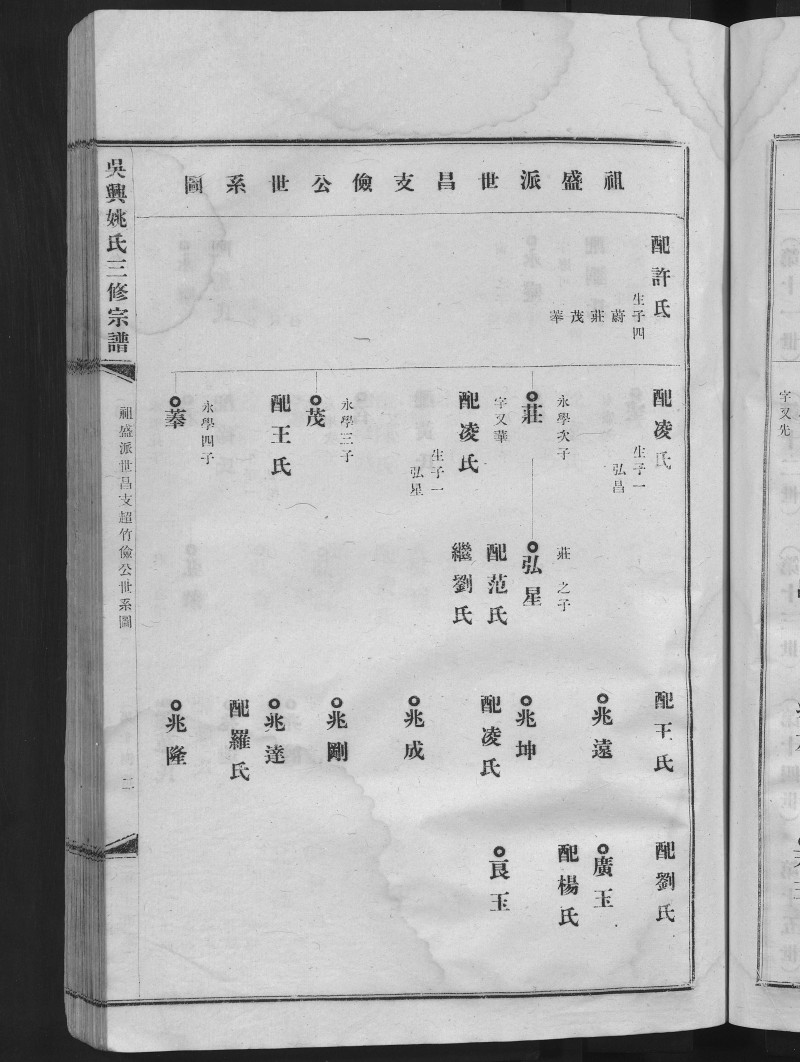 祖盛派世昌支儉公世系圖
配許氏
生子四
蔚
莊
茂
葢
配凌氏
生子一
弘昌
永學次子
莊
字又華
配凌氏
生子一
弘星
永學三子
茂
配王氏
永學四子
莊之子
弘星
配范氏
繼劉氏
配王氏
兆遠
兆坤
配凌氏
兆成
兆剛
兆達
配羅氏
兆隆
配劉氏
廣玉
配楊氏
良玉
吳興姚氏三修宗譜
祖盛派世昌支超竹儉公世系圖
二
字又先